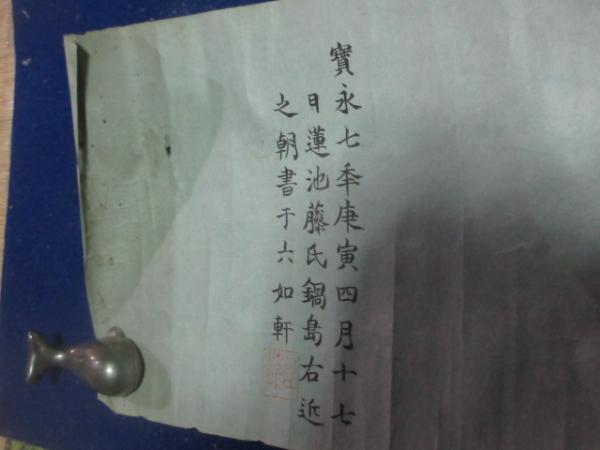 寶永七年庚寅四月十七
日蓮池藤氏鍋島右近
之朝書于六如軒